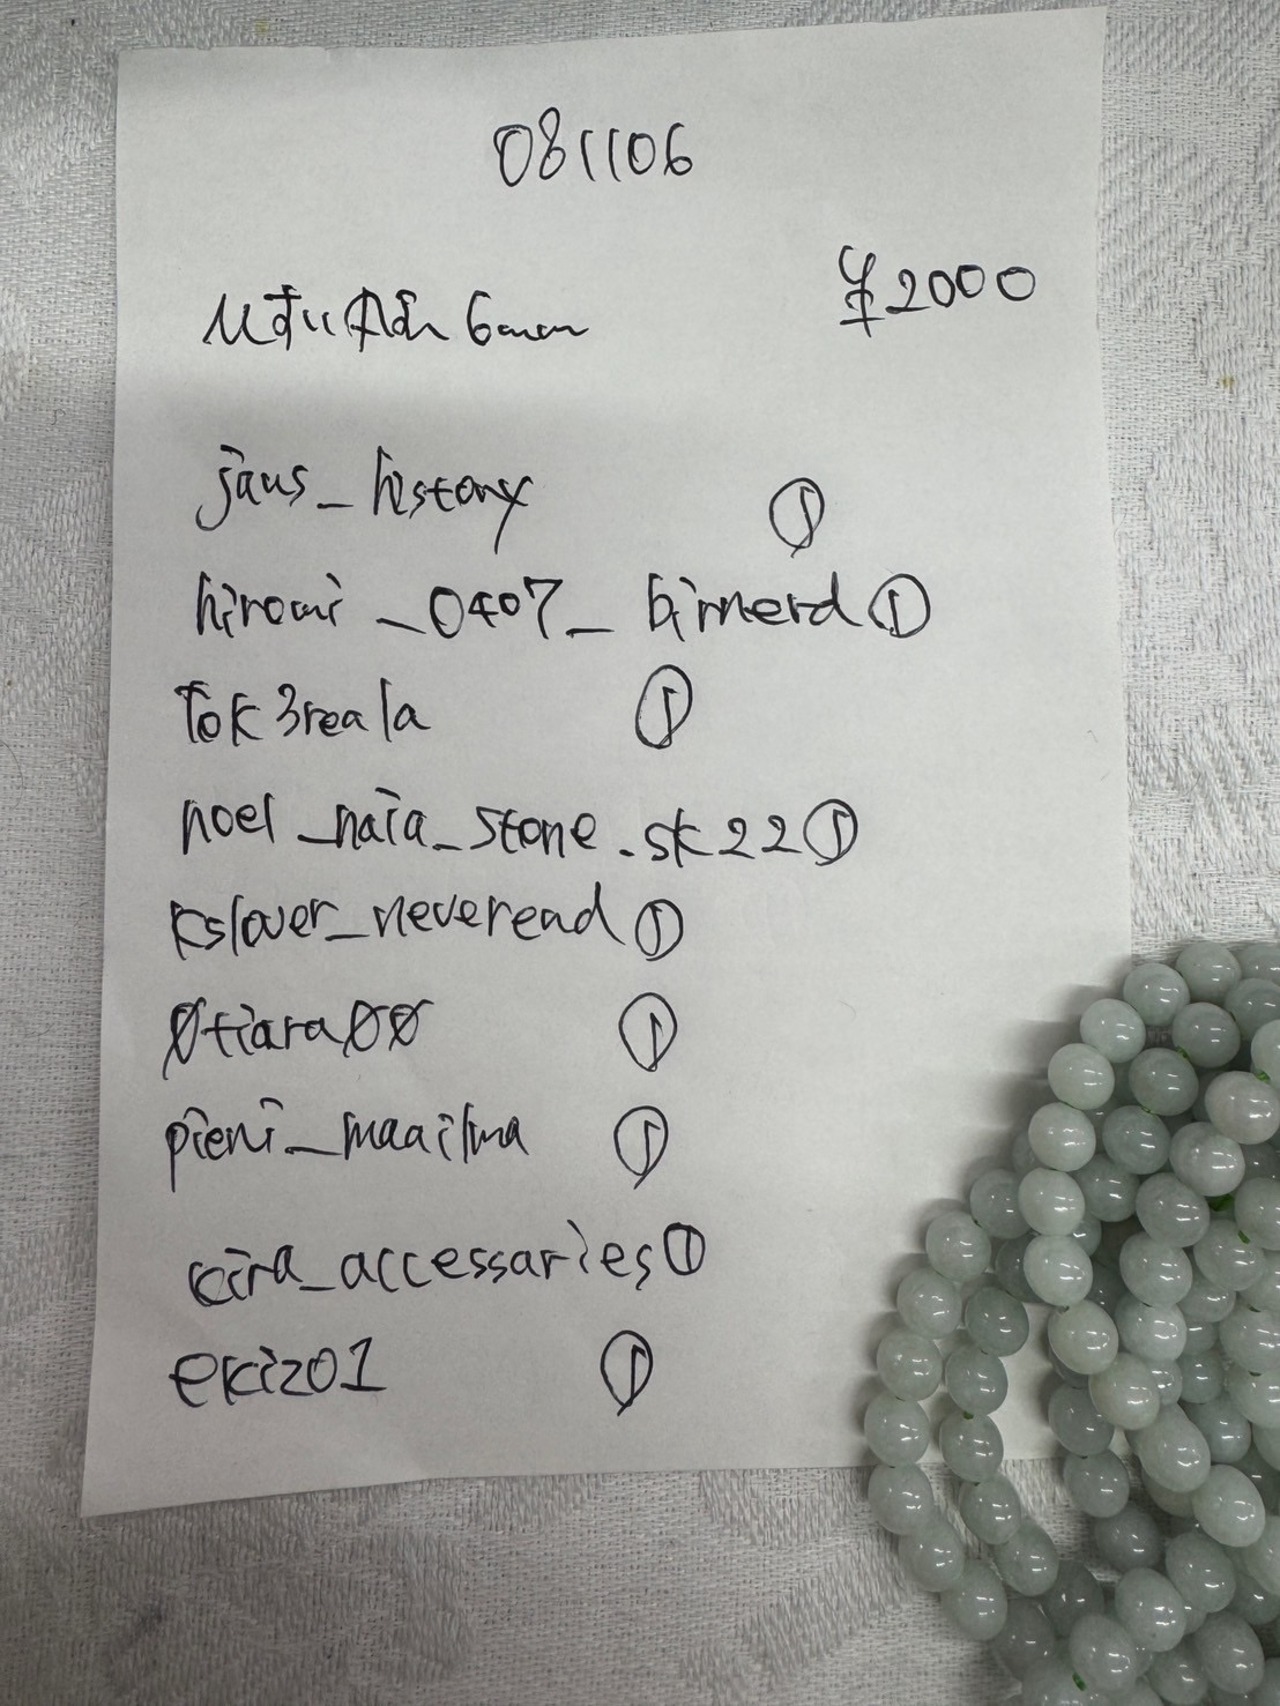 081106
6mm ¥2000
jaus_history ①
hiromi_0407_birnerd ①
Tok3reala ①
noel_naia_stone.sk22 ①
kslover_neverend ①
0tiara00 ①
pieni_maailma ①
cira_accessaries ①
ekizo1 ①